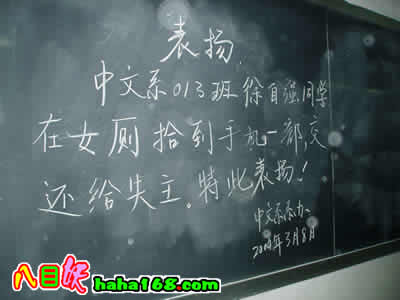 表扬
中文系013班徐自强同学
在女厕拾到手机一部,交
还给失主。特此表扬!
中文系办
3月8日
八目妖
haha168.com